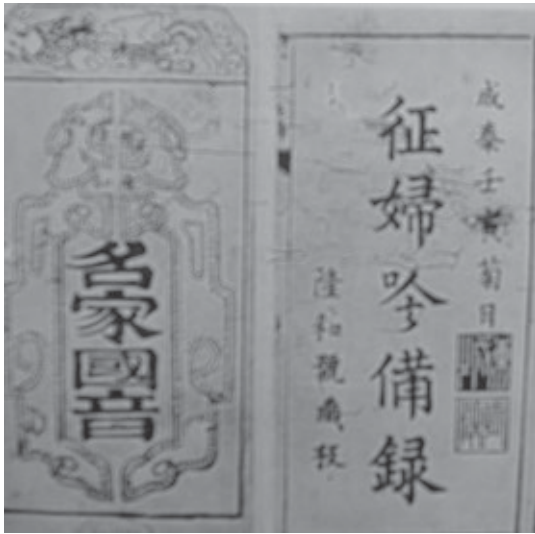 成泰壬寅菊月
征婦吟備録
和號藏板
名家國音